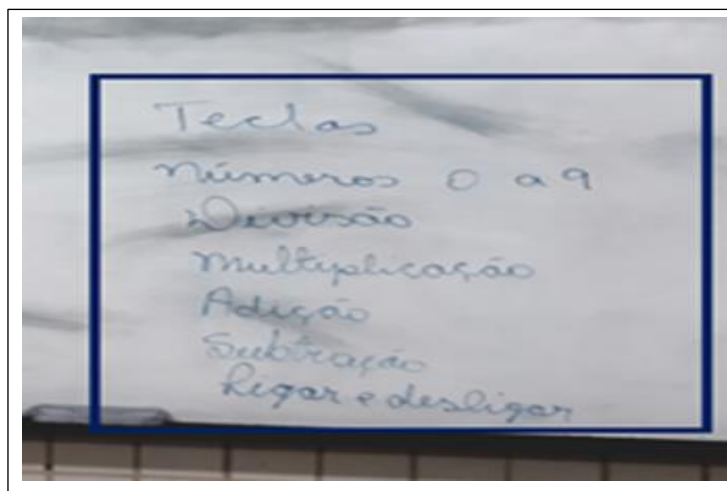 Teclas
Números 0 a 9
Divisão
Multiplicação
Adição
Subtração
Ligar e desligar